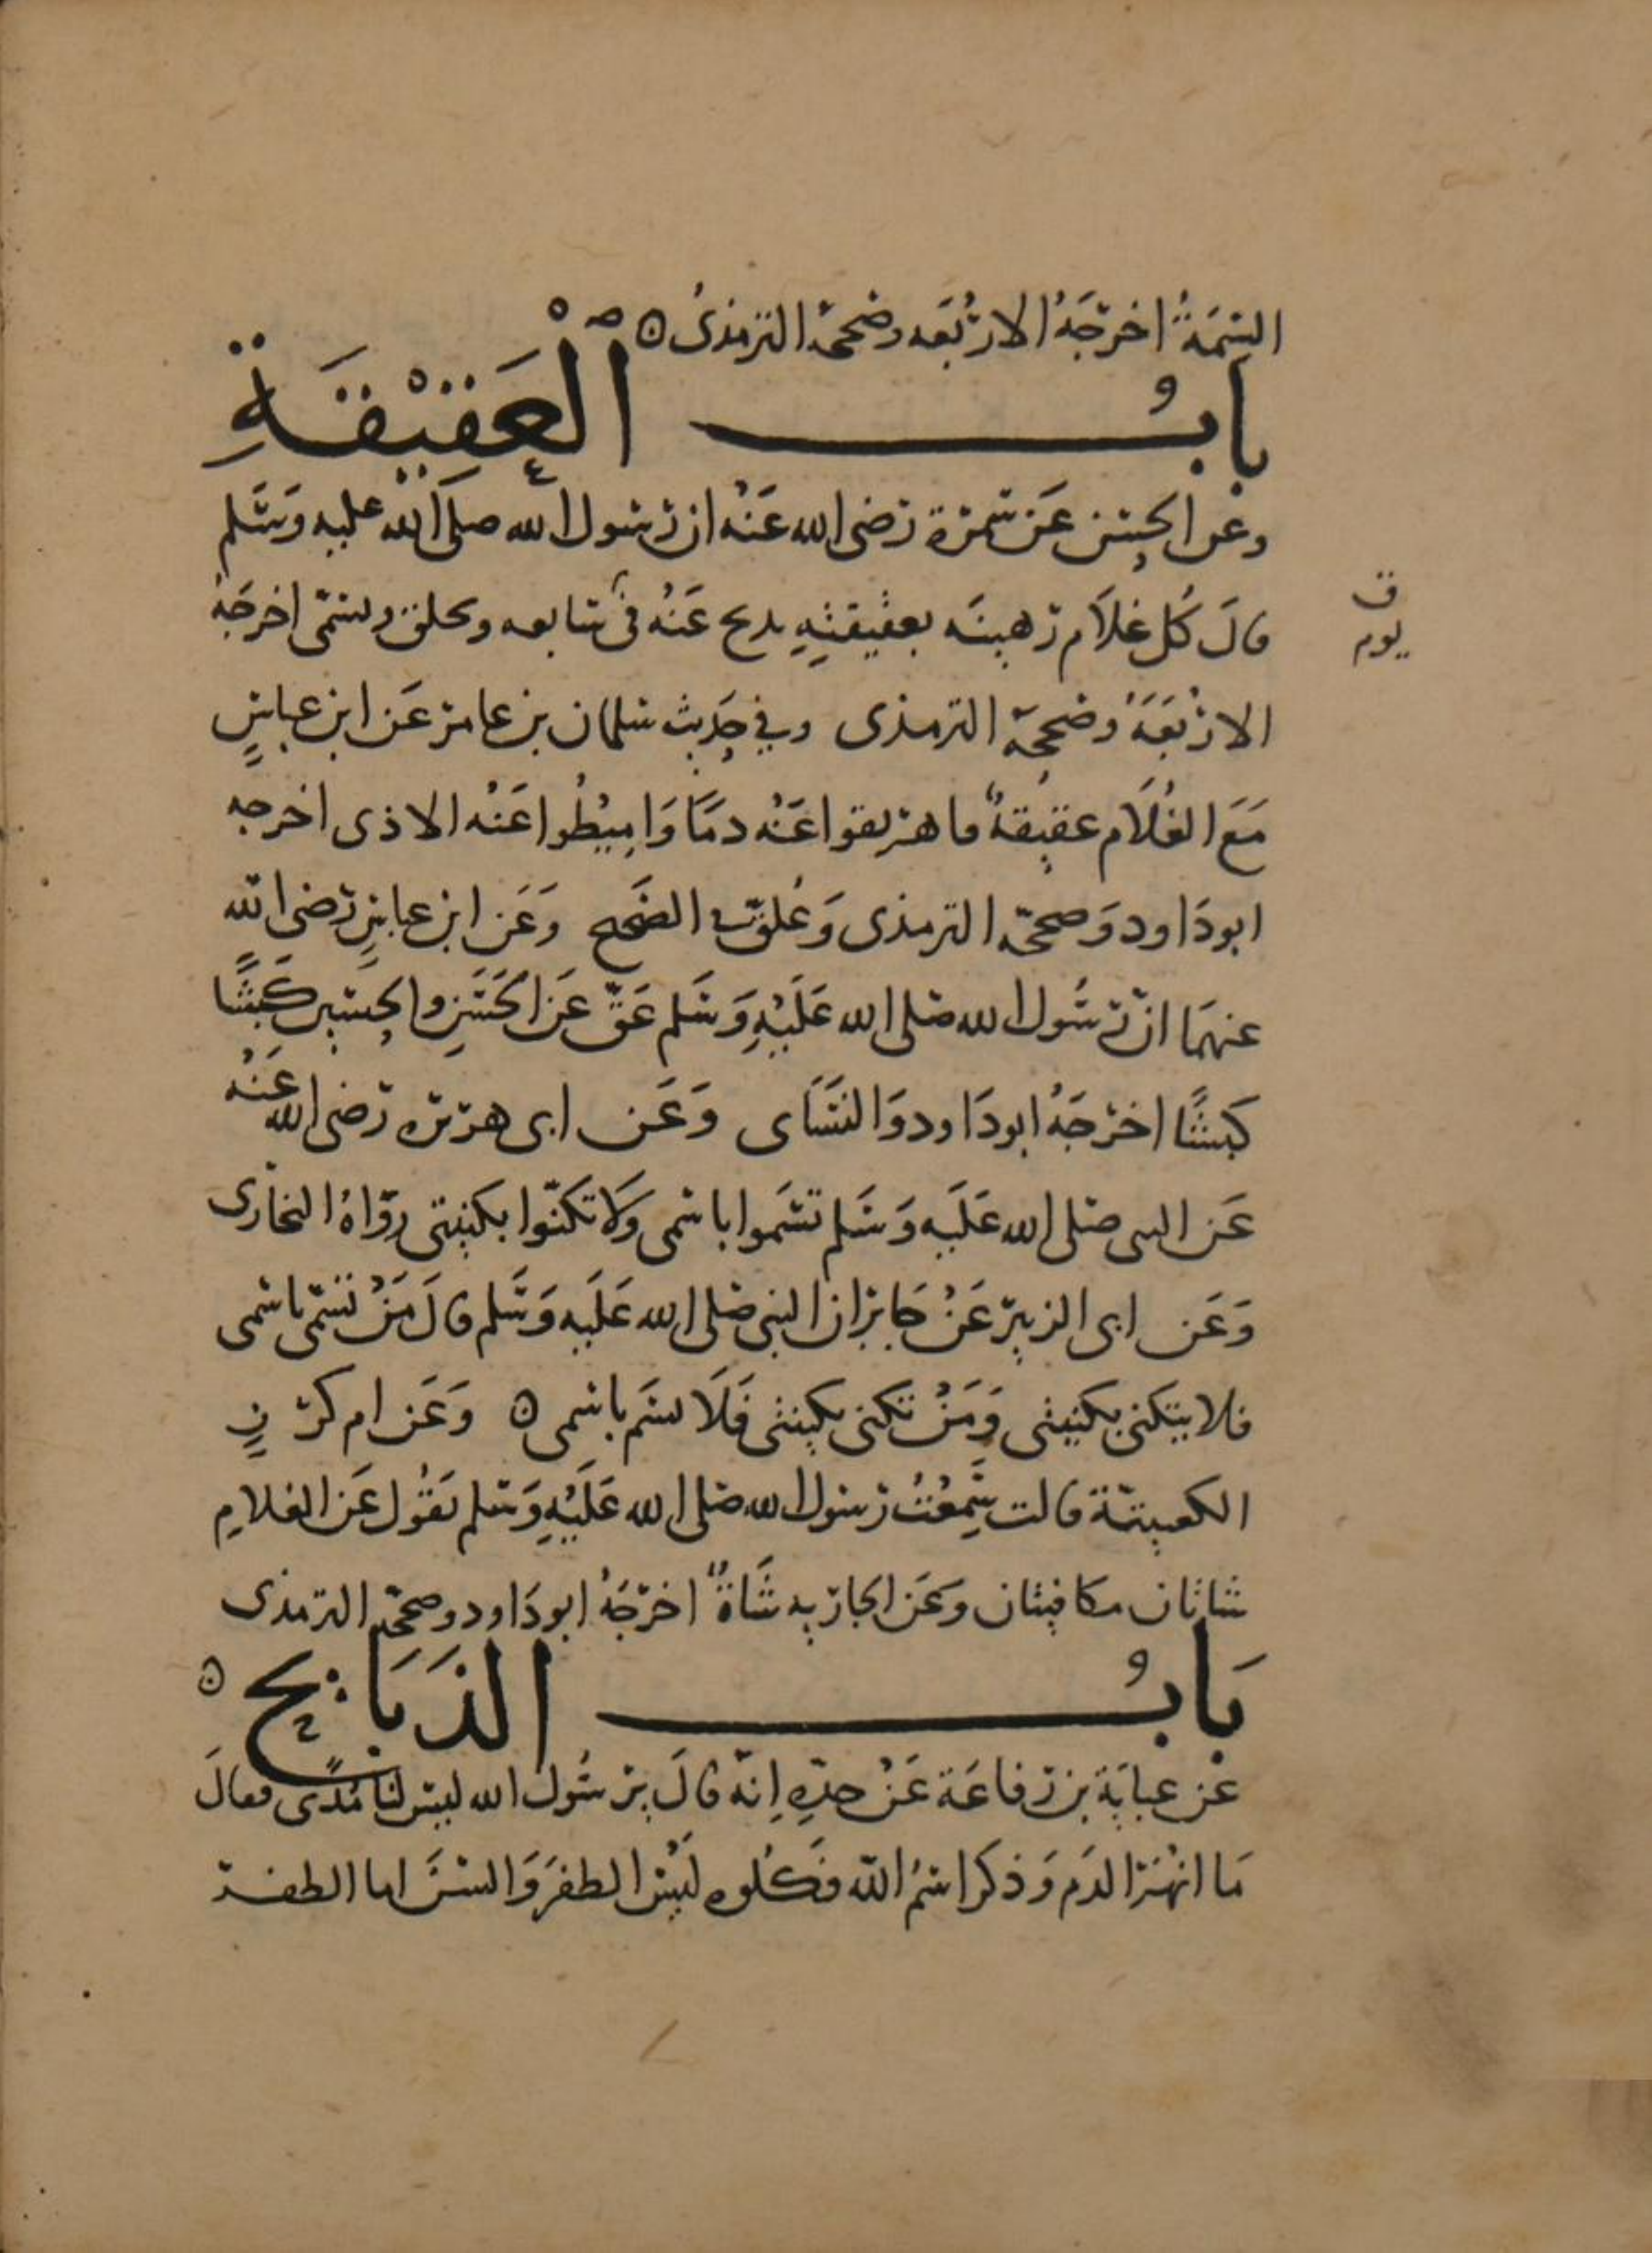 السِّمَةُ اخرَجَهُ الارْبَعَه وصححهُ الترمذىُ ه
بابُ الْعَقِيْقَةِ
وعن الحسَن عَن سَمرَة رضى الله عَنْه ان رسول الله صلى الله عليه وَسَلم
قالَ كُل غلاَم رَهينَه بعقيقتِهِ يذبح عَنْهُ فى سَابعه ويحلق ويسمّى اخرجَهُ
ق
يوم
الارْبَعَهُ وصححهُ الترمذى وفي حَدِيث سلمان بن عامر عَن ابن عباسٍ
مَعَ الغُلاَم عقيقةٌ فاهريقوا عَنْه دمًا وَامِيْطُوا عَنْه الاذى اخرجه
ابودَاود وَصححهُ الترمذى وَعُلقَ فى الصَحيح وَعَن ابن عباسٍ رَضى الله
عنهمَا ان رسُول الله صَلى الله عَلَيْهِ وَسَلم عَقّ عَن الحَسَنِ والحسَين كَبشًا
كبشًا اخرَجَهُ ابودَاود وَالنسَاى وَعَن ابى هريره رَضى الله عَنْه
عَن النبى صَلى الله عَلَيه وَسَلم تسَموا باسمى وَلا تكنّوا بكنيتى روَاهُ البخارى
وَعَن ابى الزبير عَنْ جَابر ان النبى صَلى الله عَلَيه وَسَلم قالَ مَنْ تسمّى باسمى
فلا يتكنى بكنيتى وَمَنْ تكنى بكنيتى فَلاَ يسَم باسمى ه وَعَن ام كرزٍ
الكعبيّة قالت سَمِعْتُ رسول الله صَلى الله عَلَيْهِ وَسَلم يَقُول عَن الغلامِ
شاتان مكافيتان وعَن الجاريه شَاةٌ اخرجَهُ ابودَاود وصححهُ الترمذى
بَابُ الذَبَايح ه
عَن عبايَة بن رفاعَة عَنْ جدّهِ اِنهُ قالَ يرسُول الله ليسَ لنا مُدًى فقالَ
مَا انهَرَ الدَم وَذكر اسمُ الله فَكُلوه ليْسَ الظفرَ وَالسنَ اما الظفر